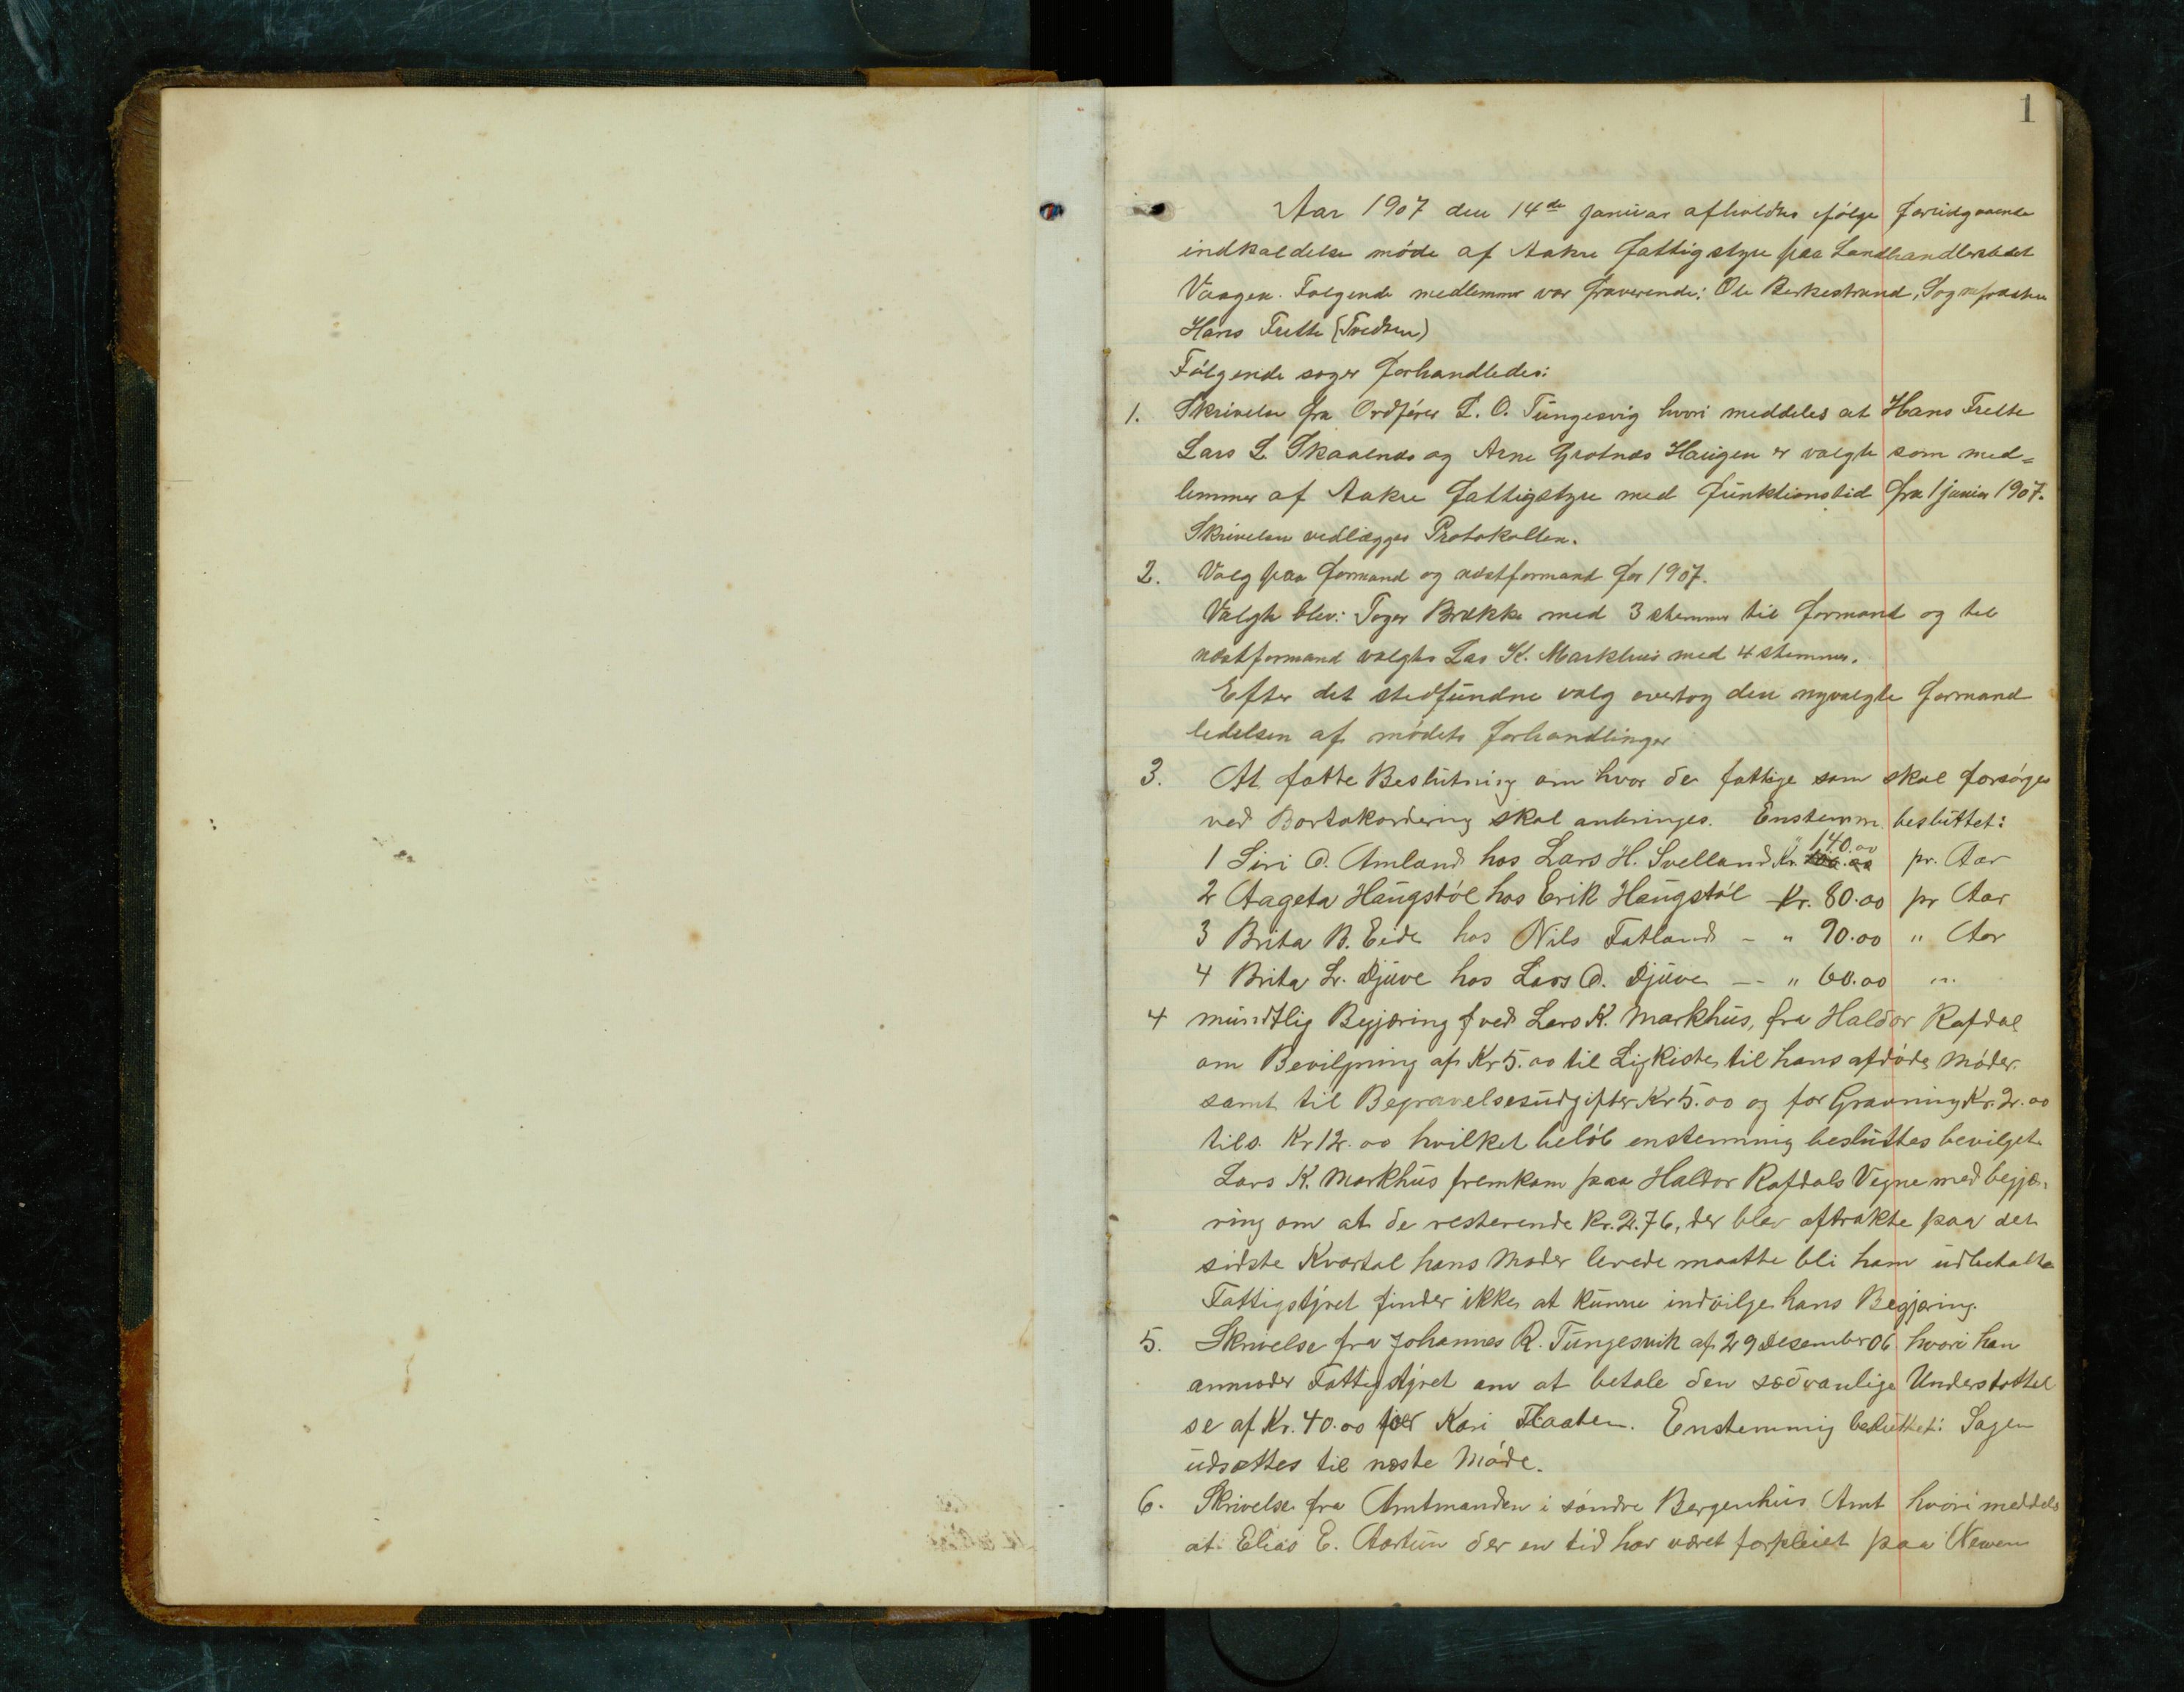 1
Aar 1907 den 14de januar afholdtes ifølge forudgaaende
indkaldelse møde af Aakre fattigstyre paa Landhandlerstedet
Vaagen. Følgende medlemmer var fraværende: Ole Birkestrand, Sognepræsten
Hans Frette (Tredsen)
Følgende sager forhandledes:
1. Skrivelse fra Ordfører L. O. Tungesvig hvori meddeles at Hans Frette
Lars L. Skaalnæs og Arne Grotnæs Haugen er valgte som med=
lemmer af Aakre fattigstyre med funktionstid fra 1 januar 1907.
Skrivelsen vedlægges Protokollen.
2. Valg paa formand og næstformand for 1907.
Valgte blev: Torger Brække med 3 stemmer til formand og til
næstformand valgtes Lars K. Markhus med 4 stemmer.
Efter det stedfundne valg overtog den nyvalgte formand
ledelsen af mødets forhandlinger
3. At fatte Beslutning om hvor de fattige som skal forsørges
ved Bortakordering skal anbringes. Enstemm. besluttet:
1 Siri O. Amland hos Lars H. Svelland Kr. 140.00 pr. Aar
2 Aageta Haugstøl hos Erik Haugstøl Kr. 80.00 pr Aar
3 Brita B. Eide hos Nils Fatland - " 90.00 " Aar
4 Brita Lr. Djuve hos Lars O. Djuve -- " 60.00 "
4 mundtlig Begjæring ved Lars K. Markhus, fra Haldor Rafdal
om Bevilgning af Kr 5.00 til Ligkiste til hans afdøde Moder.
samt til Begravelsesudgifter Kr 5.00 og for Gravning Kr. 2.00
tils. Kr 12.00 hvilket beløb enstemmig besluttes bevilget.
Lars K. Markhus fremkom paa Haldor Rafdals Vegne med begjæ=
ring om at de resterende Kr. 2.76, der blev aftrukte paa det
sidste Kvartal hans Moder levede maatte bli ham udbetalte
Fattigstyret finder ikke at kunne indvilge hans Begjæring.
5. Skrivelse fra Johannes R. Tungesvik af 29 Desember 06 hvori han
anmoder Fattigstyret om at betale den sædvanlige Understøttel
se af Kr. 40.00 for Kari Flaaten. Enstemmig besluttet: Sagen
udsættes til næste Møde.
6. Skrivelse fra Amtmanden i søndre Bergenhus Amt hvori meddels
at Elias E. Aartun der en tid har været forpleiet paa Neven